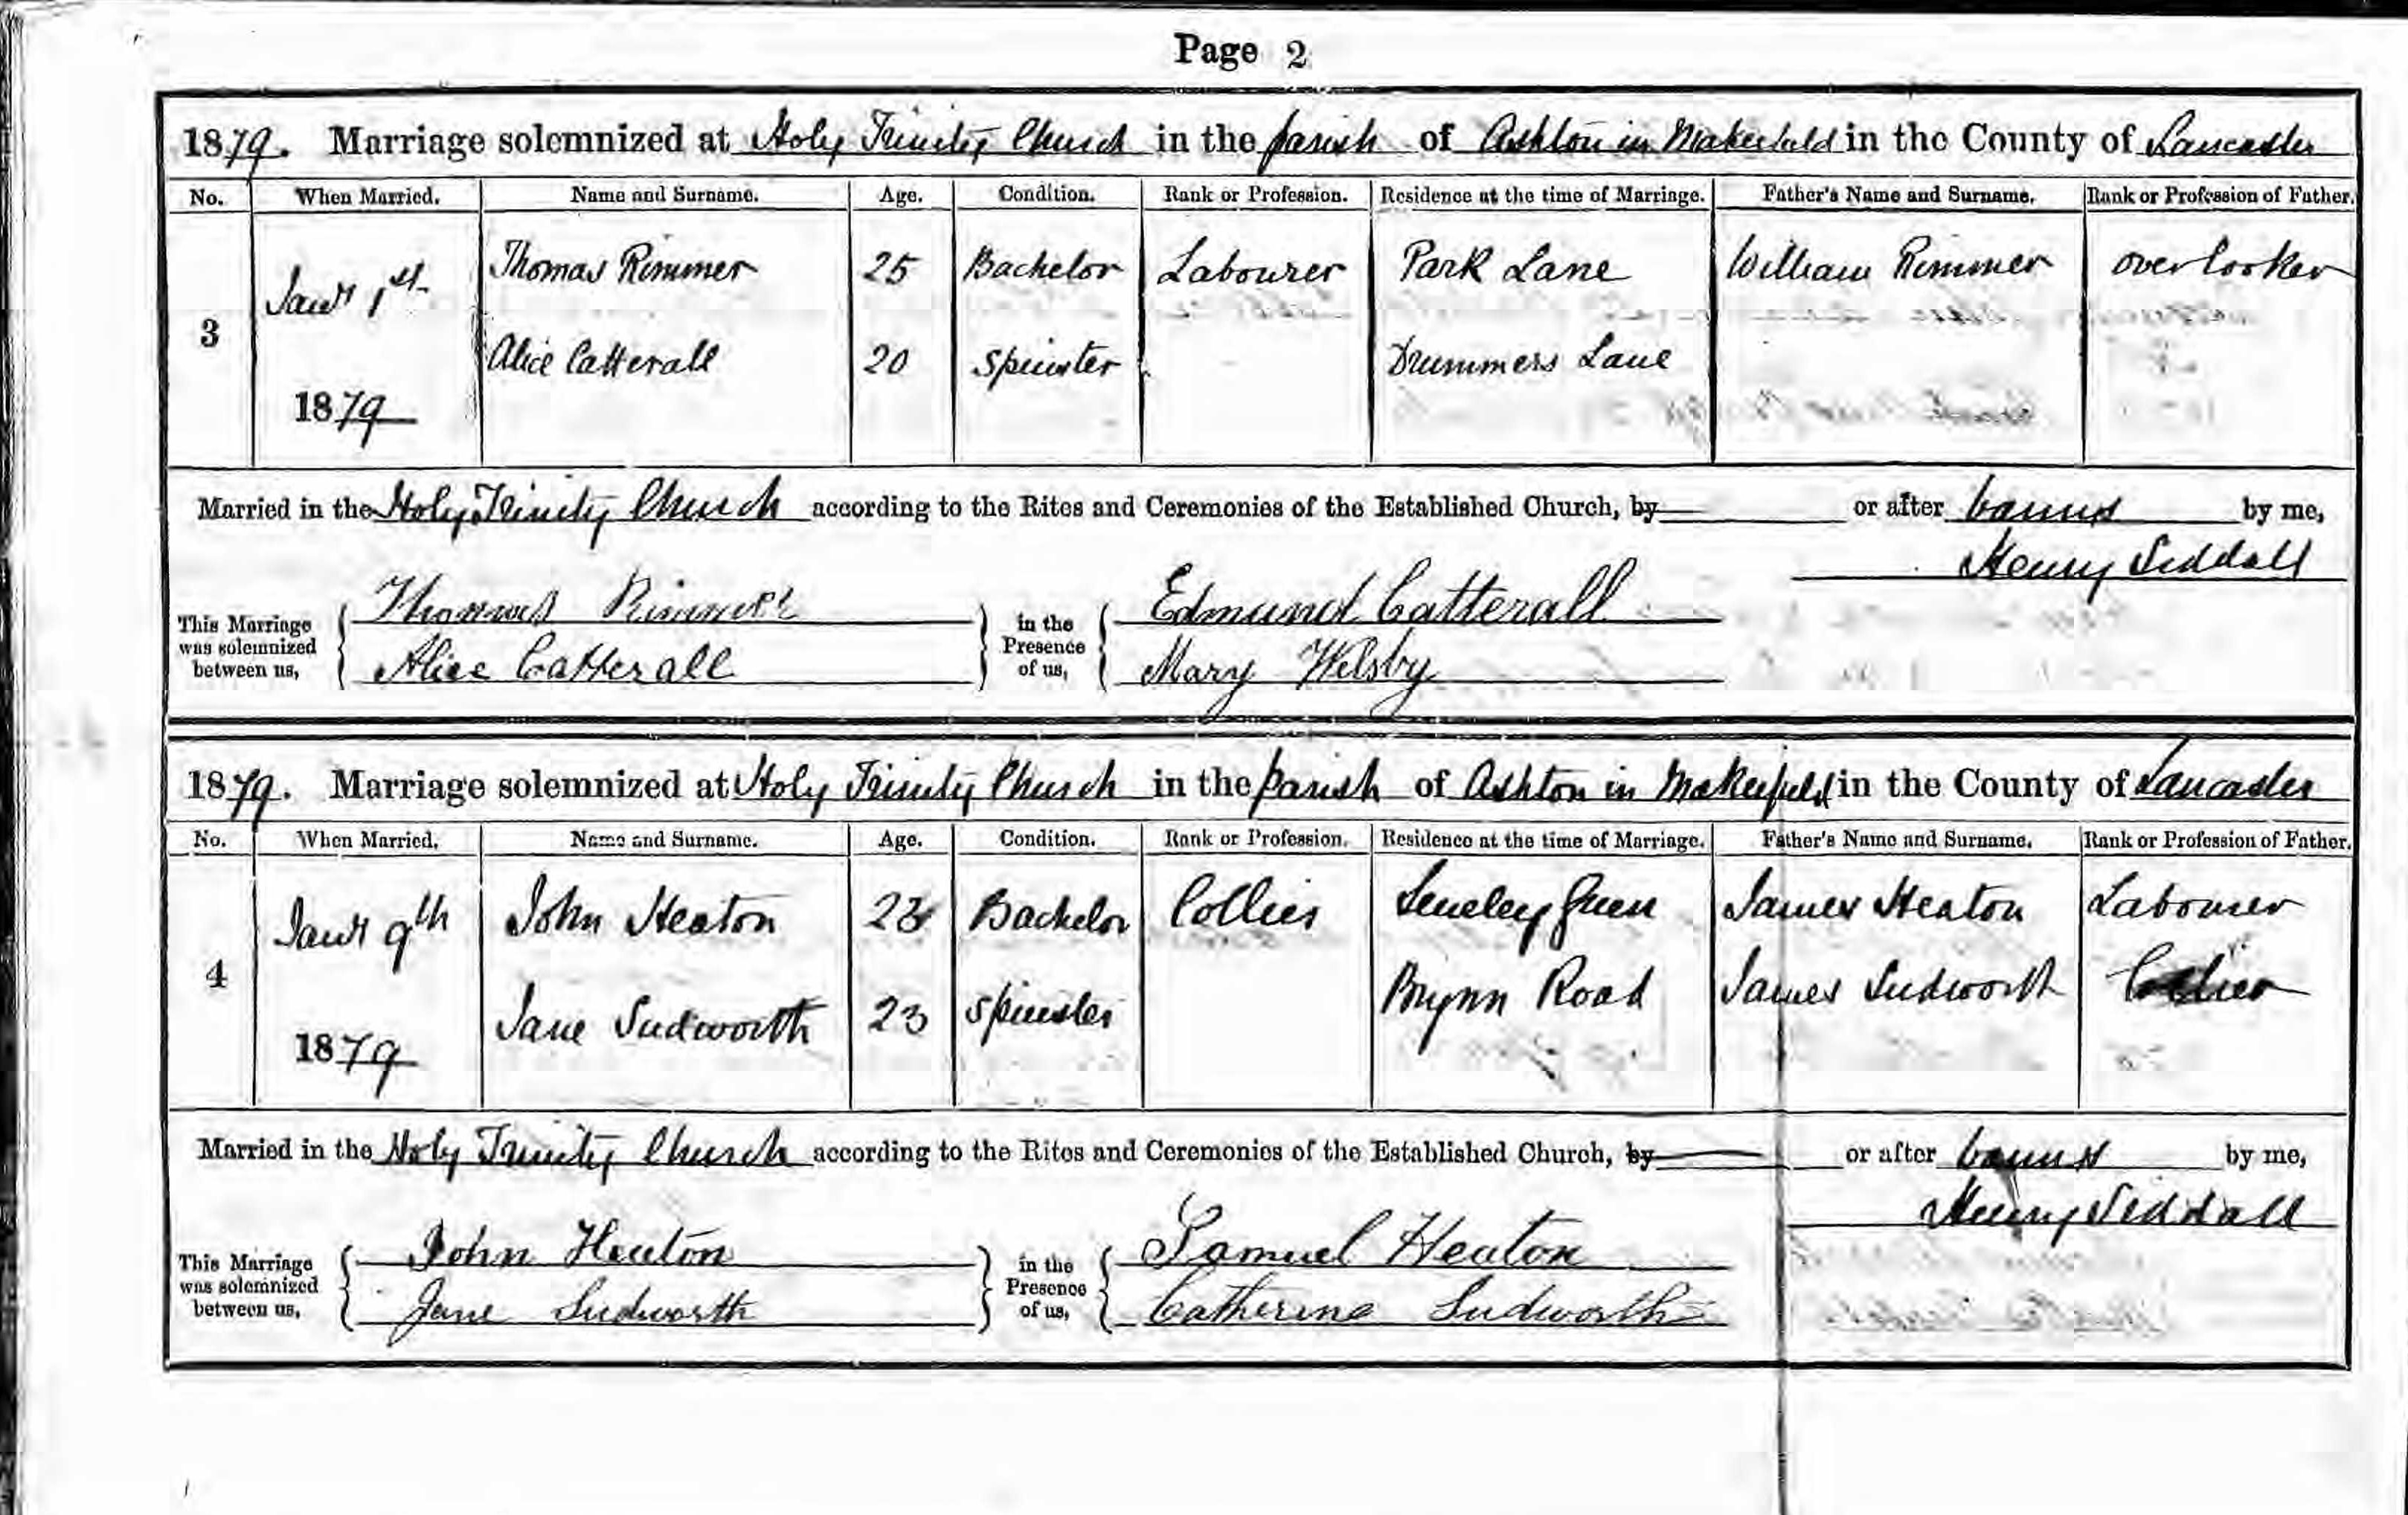 Page 2
1879. Marriage solemnized at Holy Trinity Church in the parish of Ashton in Makerfield in the County of Lancaster
No. When Married. Name and Surname. Age. Condition. Rank or Profession. Residence at the time of Marriage. Father's Name and Surname. Rank or Profession of Father.
3 Jany 1st 1879 Thomas Rimmer 25 Bachelor Labourer Park Lane William Rimmer overlooker
Alice Catterall 20 Spinster Drummers Lane
Married in the Holy Trinity Church according to the Rites and Ceremonies of the Established Church, by or after banns by me,
Henry Siddall
This Marriage was solemnized between us, Thomas Rimmer in the Presence of us, Edmund Catterall
Alice Catterall Mary Welsby
1879. Marriage solemnized at Holy Trinity Church in the parish of Ashton in Makerfield in the County of Lancaster
No. When Married. Name and Surname. Age. Condition. Rank or Profession. Residence at the time of Marriage. Father's Name and Surname. Rank or Profession of Father.
4 Jany 9th 1879 John Heaton 23 Bachelor Collier Seneley Green James Heaton Labourer
Jane Sudworth 23 Spinster Brynn Road James Sudworth Collier
Married in the Holy Trinity Church according to the Rites and Ceremonies of the Established Church, by or after banns by me,
Henry Siddall
This Marriage was solemnized between us, John Heaton in the Presence of us, Samuel Heaton
Jane Sudworth Catherine Sudworth